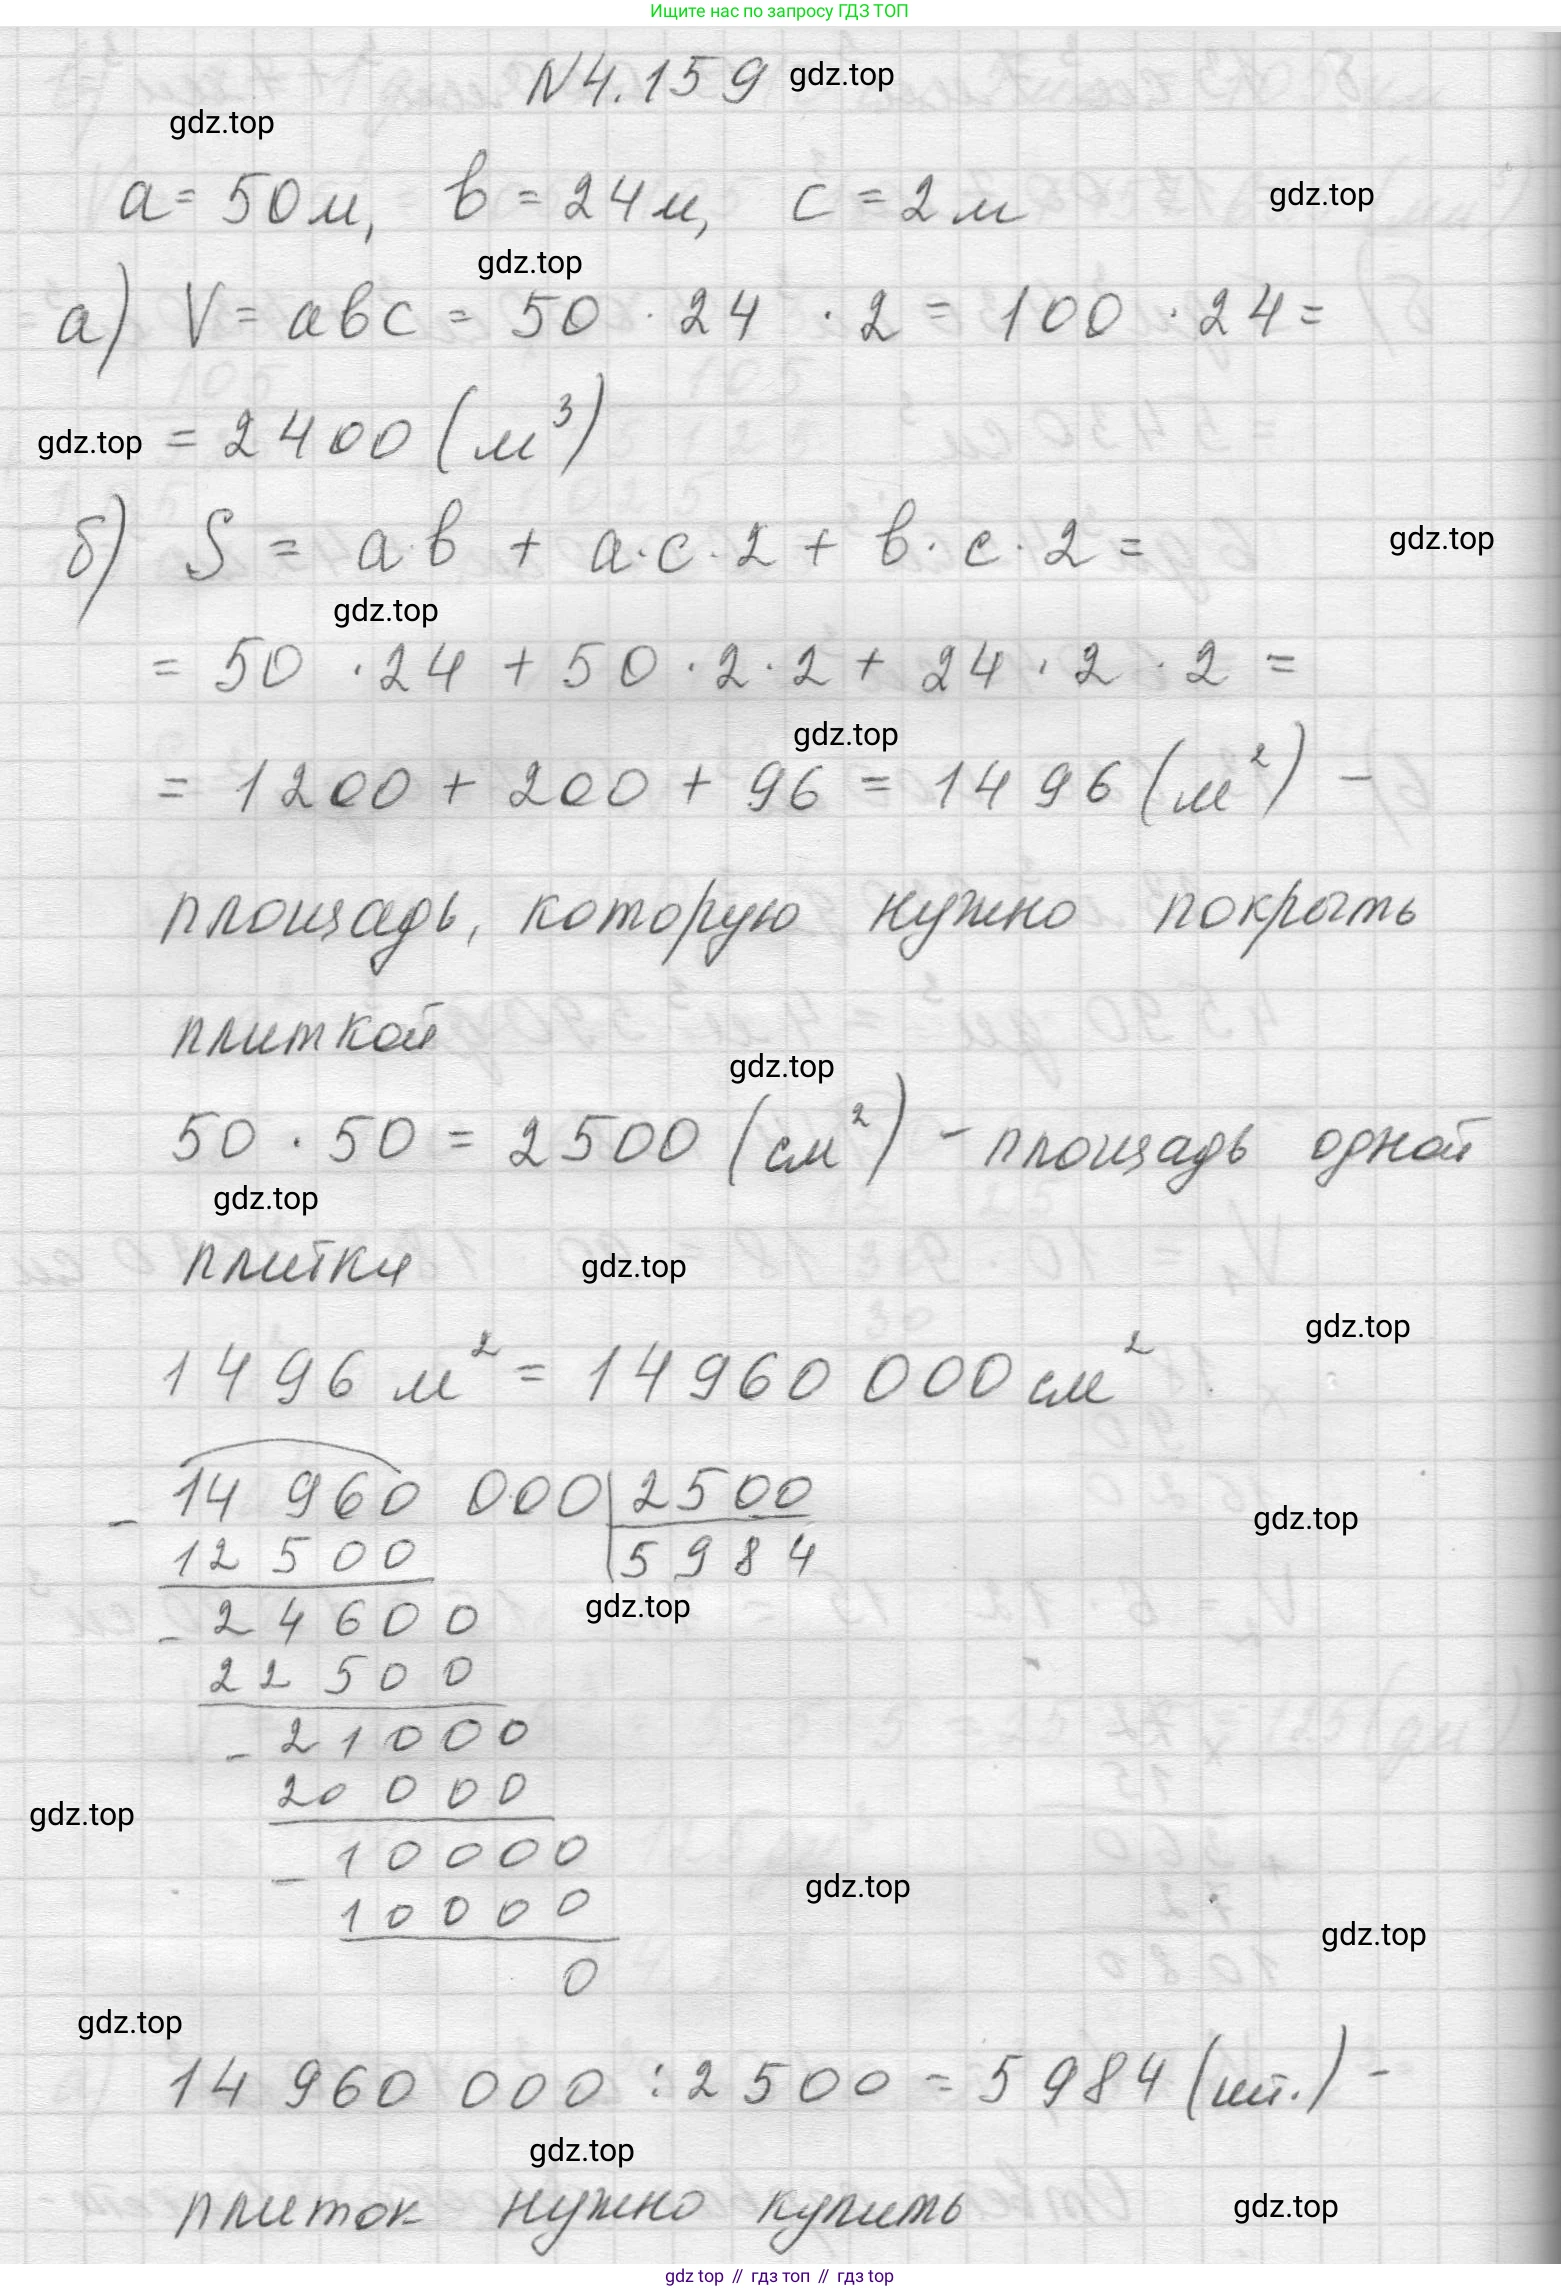 Ищите нас по запросу ГДЗ ТОП
N4.159 gdz.top
gdz.top
a = 50 м, b = 24 м, c = 2 м gdz.top
gdz.top
а) V = abc = 50 · 24 · 2 = 100 · 24 =
gdz.top = 2400 (м³)
б) S = a·b + a·c·2 + b·c·2 = gdz.top
gdz.top
= 50 · 24 + 50 · 2 · 2 + 24 · 2 · 2 =
gdz.top
= 1200 + 200 + 96 = 1496 (м²) –
площадь, которую нужно покрыть
плиткой
gdz.top
50 · 50 = 2500 (см²) – площадь одной
gdz.top
плитки gdz.top
gdz.top
1496 м² = 14960 000 см²
– 14 960 000 | 2500
gdz.top
12 500 | 5984
gdz.top
– 24600
22 500
– 21000
20 000
gdz.top
– 10000
gdz.top
10000
gdz.top
0
gdz.top
14 960 000 : 2500 = 5984 (шт.) –
gdz.top
плиток нужно купить gdz.top
gdz top // гдз топ // гдз top